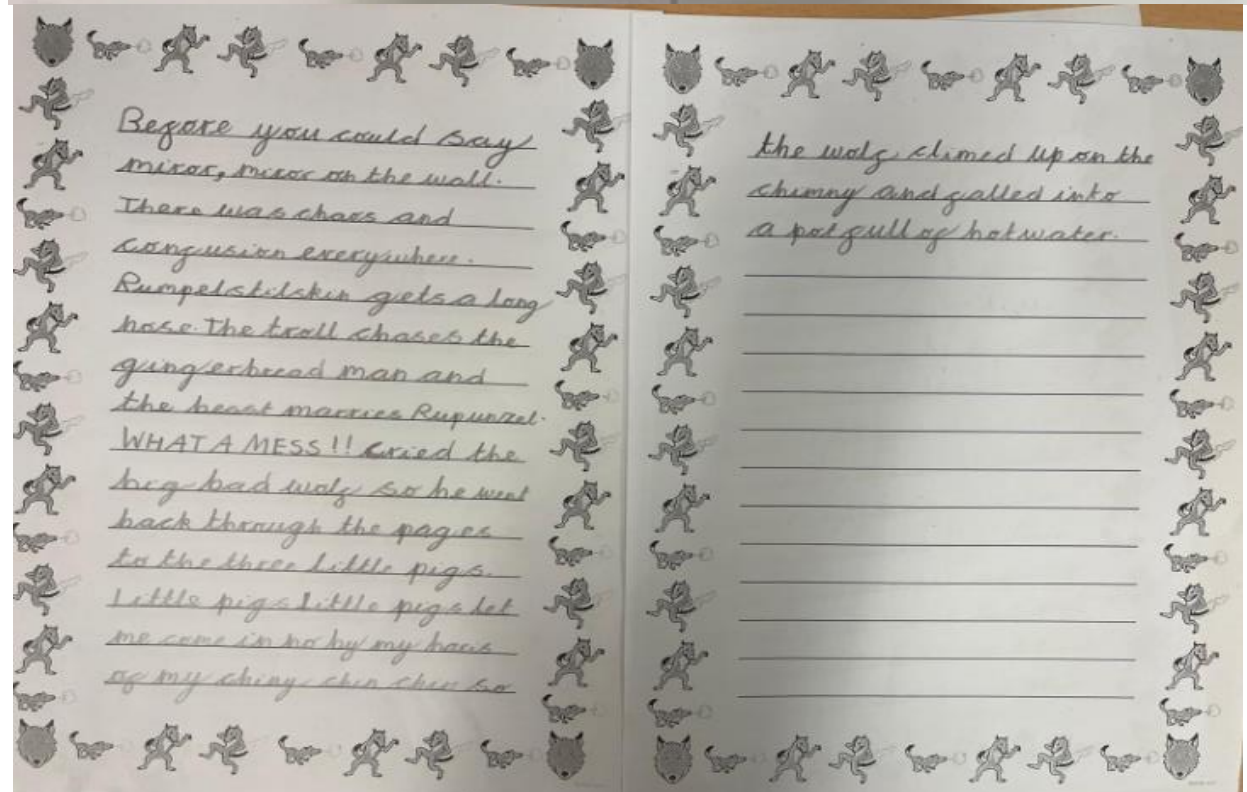 Before you could say
miror, miror on the wall.
There was chaos and
confusion everywhere.
Rumpelstilskin gets a long
hose. The troll chases the
gingerbread man and
the beast marries Rupunzel.
WHAT A MESS!! Cried the
big bad wolf so he went
back through the pages
to the three little pigs.
Little pigs little pigs let
me come in no by my hairs
of my chiny chin chin so
the wolf climed up on the
chimny and falled into
a pot full of hot water.